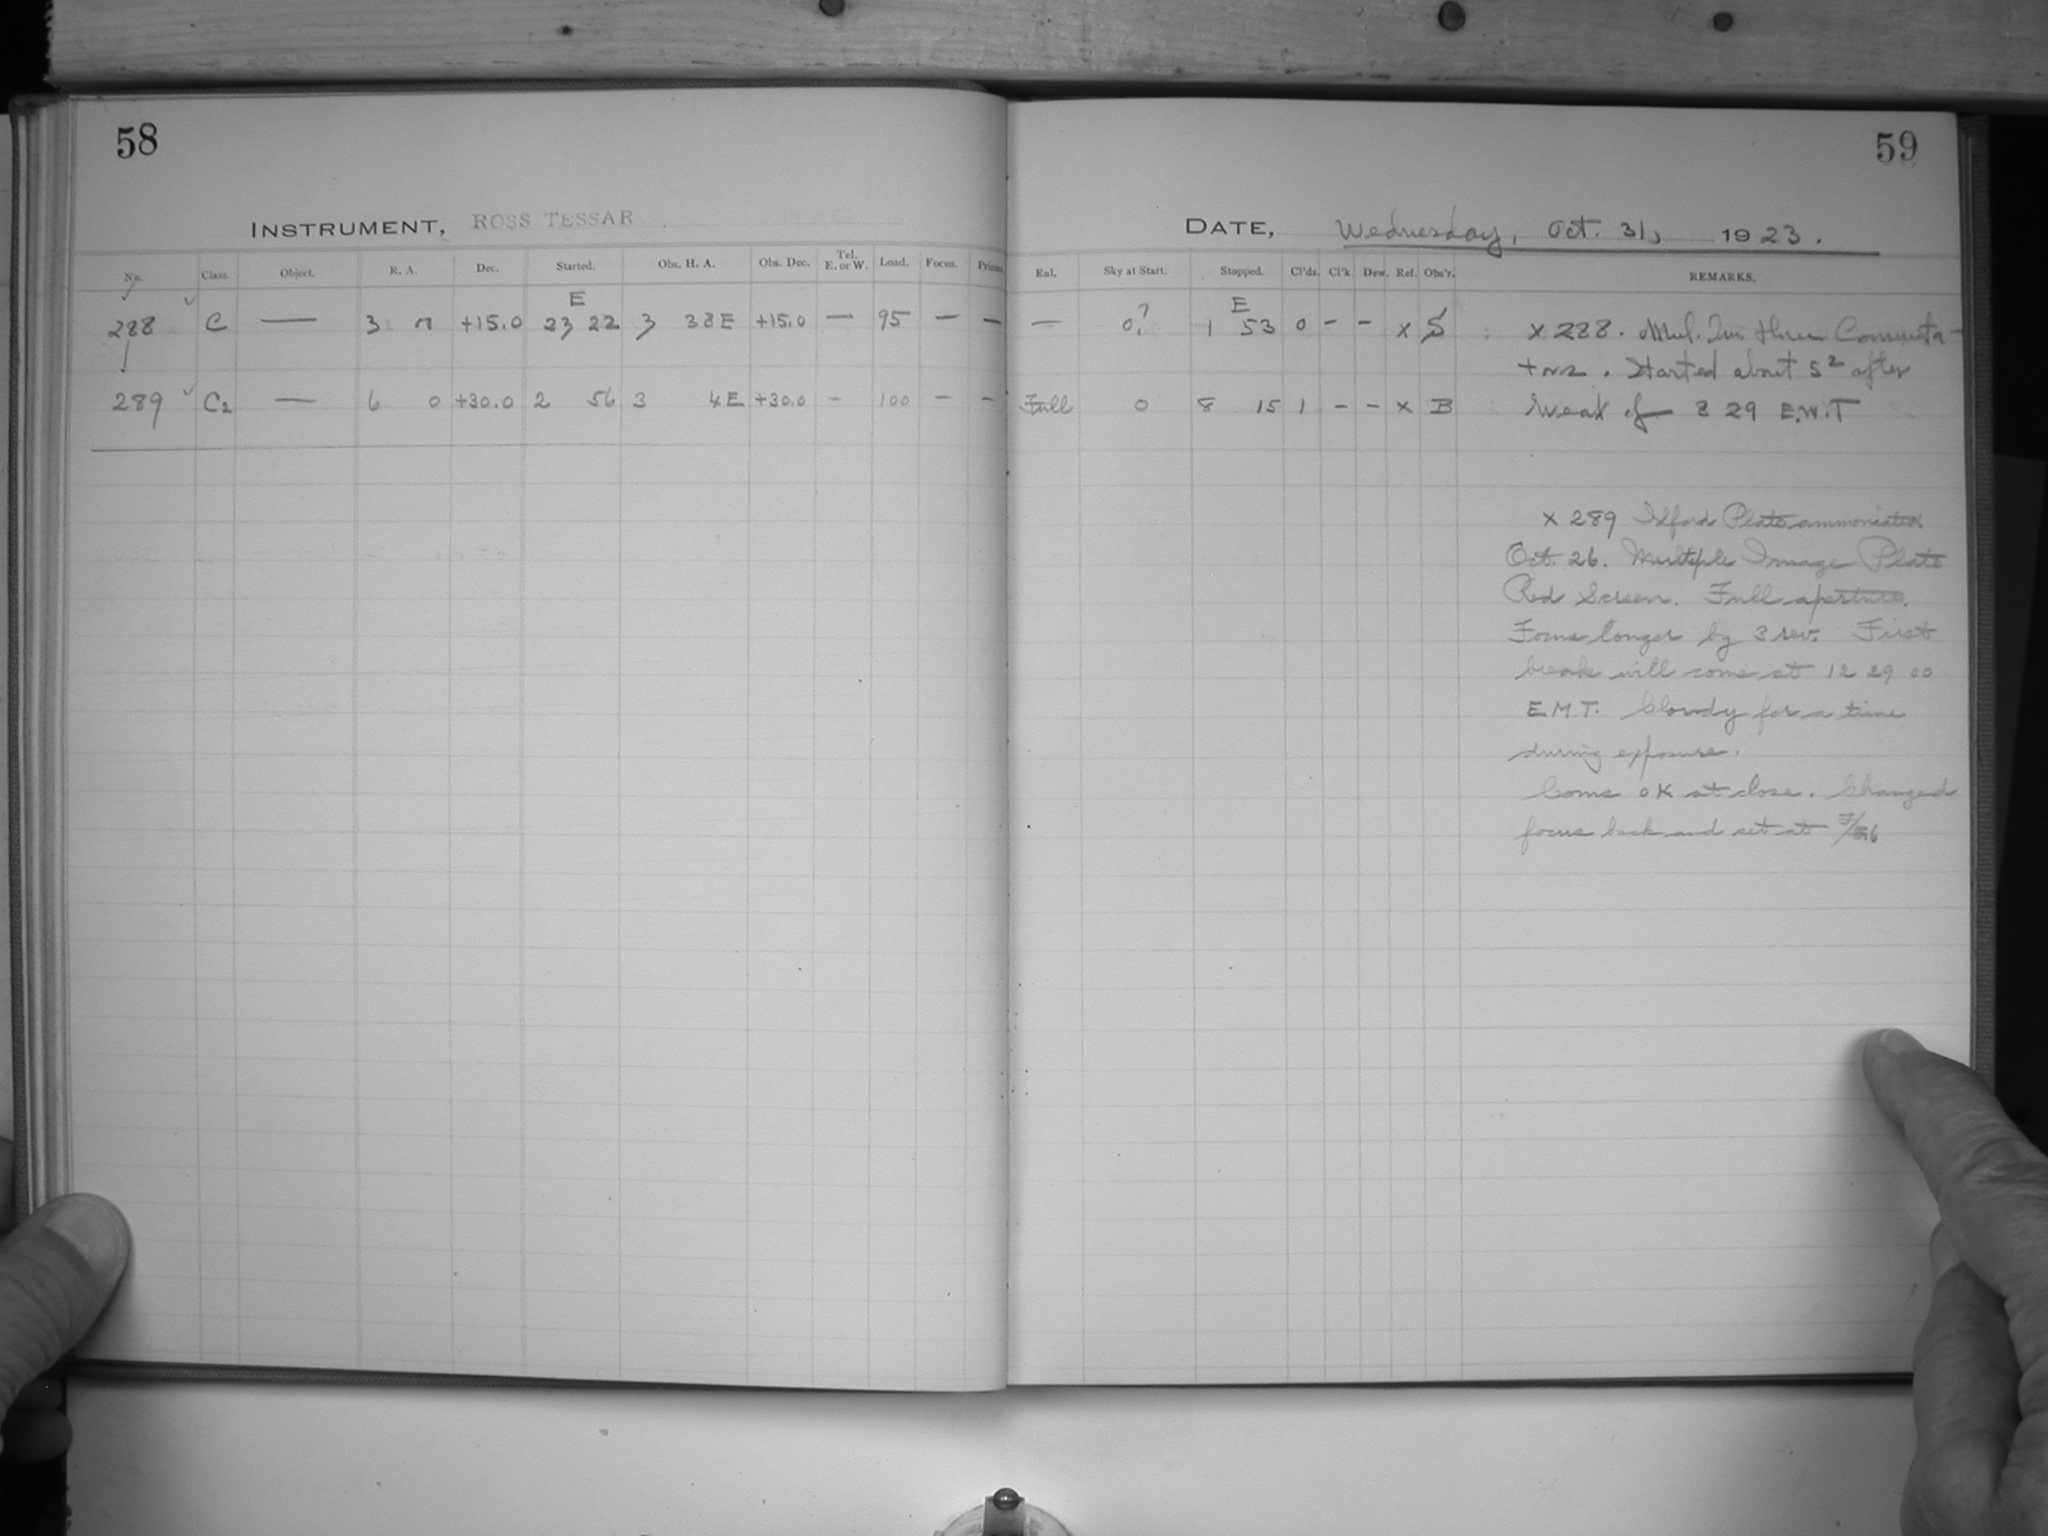 58
59
INSTRUMENT, ROSS TESSAR
DATE, Wednesday, Oct. 31, 1923.
No. Class. Object. R. A. Dec. Started. Obs. H. A. Obs. Dec. Tel. E. or W. Load. Focus. Prisms.
Eal. Sky at Start. Stopped. Cl'ds. Cl'k. Dew. Ref. Obs'r. REMARKS.
E
E
288 C — 3 0 +15.0 23 22 3 38 E +15.0 — 95 — —
— 0? 1 53 0 - - x S
289 C2 — 6 0 +30.0 2 56 3 4 E +30.0 - 100 - -
Full 0 8 15 1 - - x B
x 288. Mul. Im
Started about 5 after
break of 8 29 E.M.T
x 289 Ilford Plate ammoniated
Oct. 26. Multiple Image Plate
Red Screen. Full aperture.
Focus longer by 3 rev. First
break will come at 12 29 00
E.M.T. Cloudy for a time
during exposure.
Coms OK at close. Changed
focus back and set at